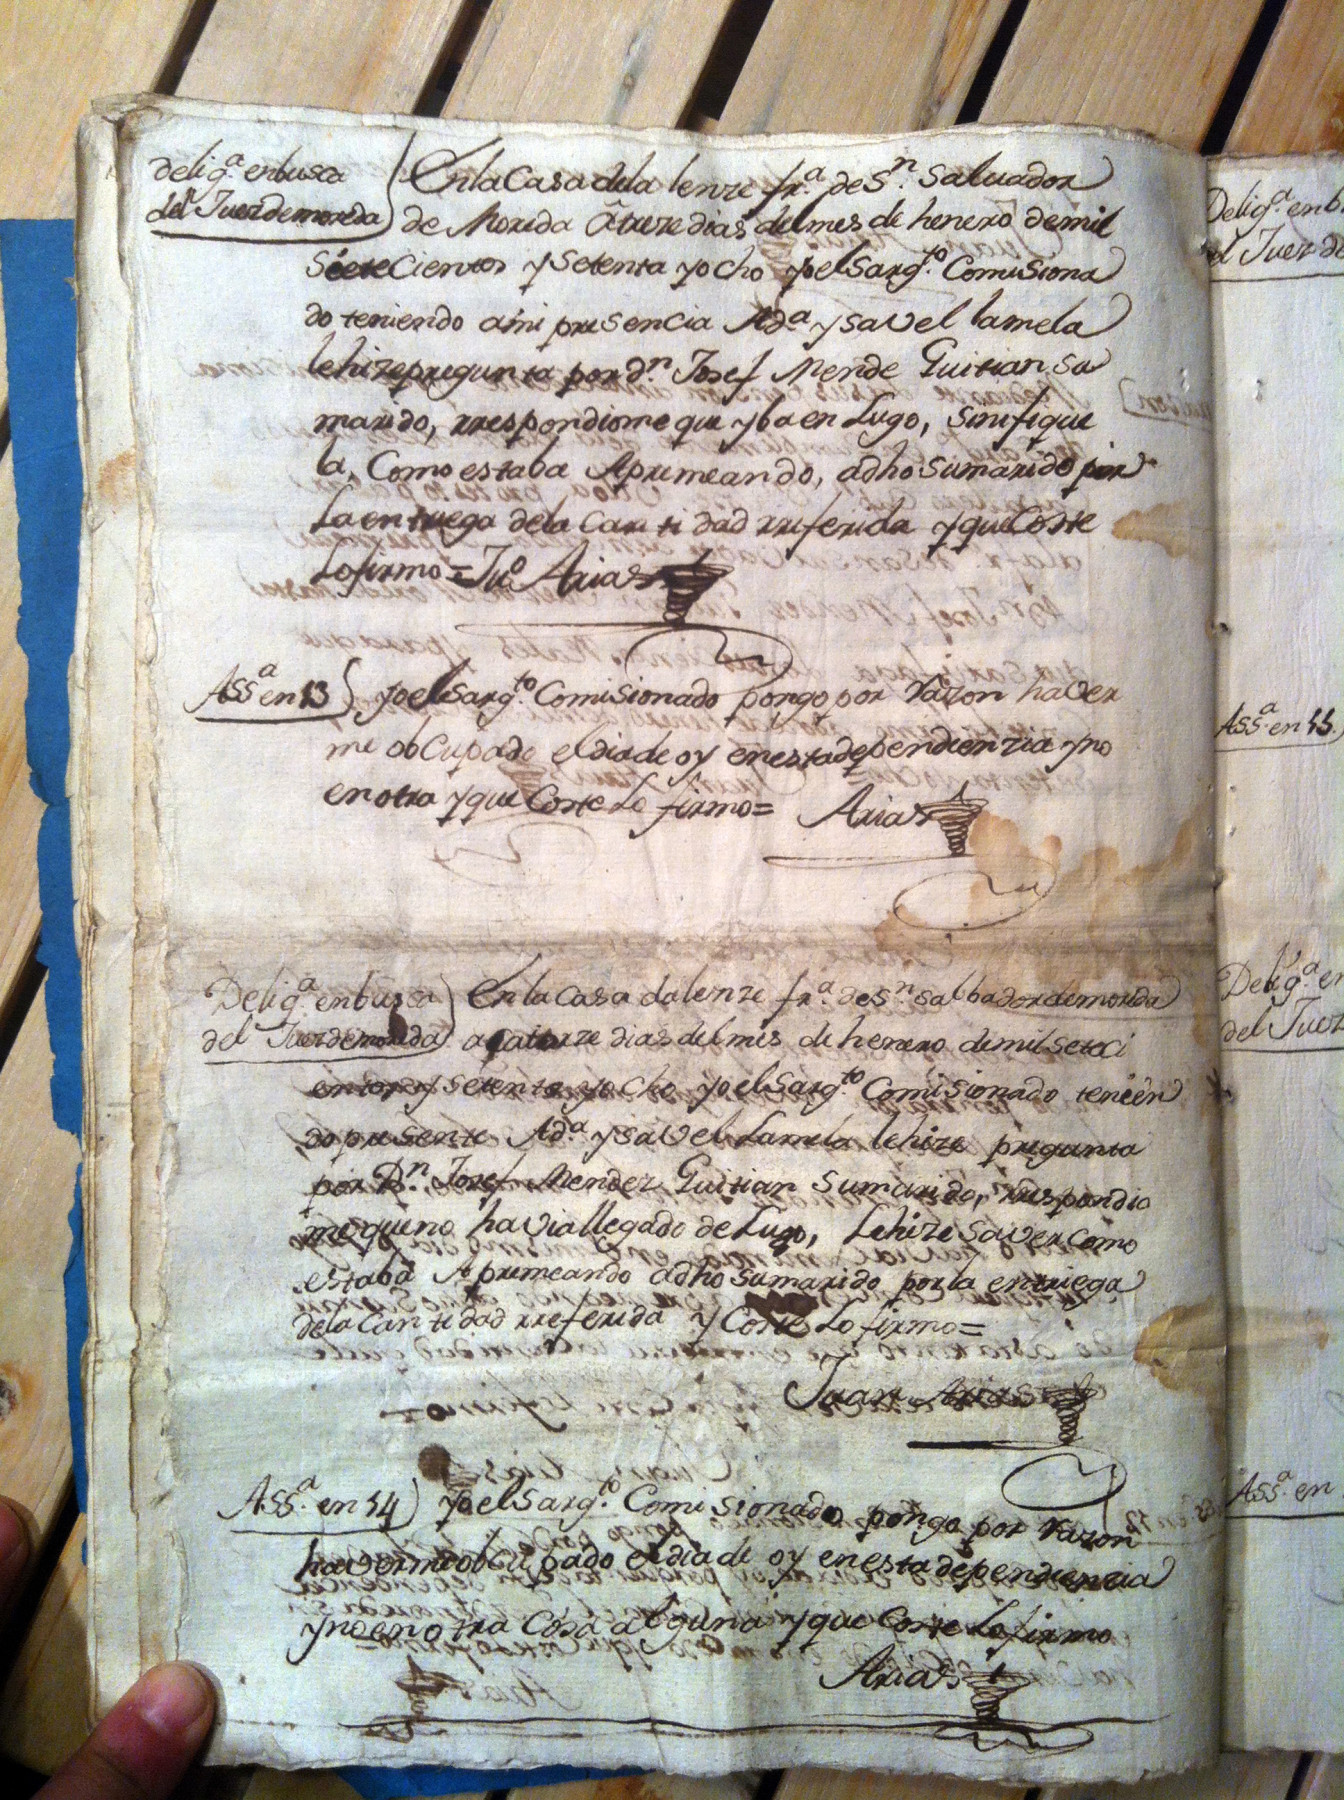 delig.ª enbusca
del Juez de moreda
En la Casa de la lenze fr.ª de S.n Saluador
de Moreda â treze dias del mes de henero de mil
siete Cientos y Setenta yocho yo el Sarg.to Comisiona
do teniendo ami presencia Ad.ª ysavel lamela
lehize pregunta por d.n Josef Mende Guitian su
marido, rrespondiome que yba en Lugo, sinifique
la, Como estaba Apremeando, adho sumarido por
La entrega dela Cantidad rreferida yque Coste
Lofirmo = Ju.o Arias
Ass.ª en 13
yo el Sarg.to Comisionado pongo por Razon haver
me obcupado el dia de oy en esta dependienzia yno
en otra yque Coste Lo firmo = Arias
Delig.ª enbusca
del Juez de moreda
En la casa da lenze fr.ª de S.n Salbador de moreda
a catorze dias del mes de henero de mil seteci
entos y setenta yocho yo el Sarg.to Comisionado tenien
do presente Ad.ª ysavel Lamela lehize pregunta
por D.n Josef Mendez Guitian Sumarido, rrespondio
me que no havia llegado de Lugo, Lehize saver como
estaba Apremeando adho sumarido por la entriega
dela Cantidad rreferida y Coste Lo firmo =
Juan Arias
Ass.ª en 14
yo el Sarg.to Comisionado pongo por Razon
haverme obcupado el dia de oy en esta dependienzia
yno en otra Cosa alguna yque Coste Lo firmo
Arias
Delig.ª en b
el Juez de
Ass.ª en 15
Delig.ª en
del Juez
Ass.ª en